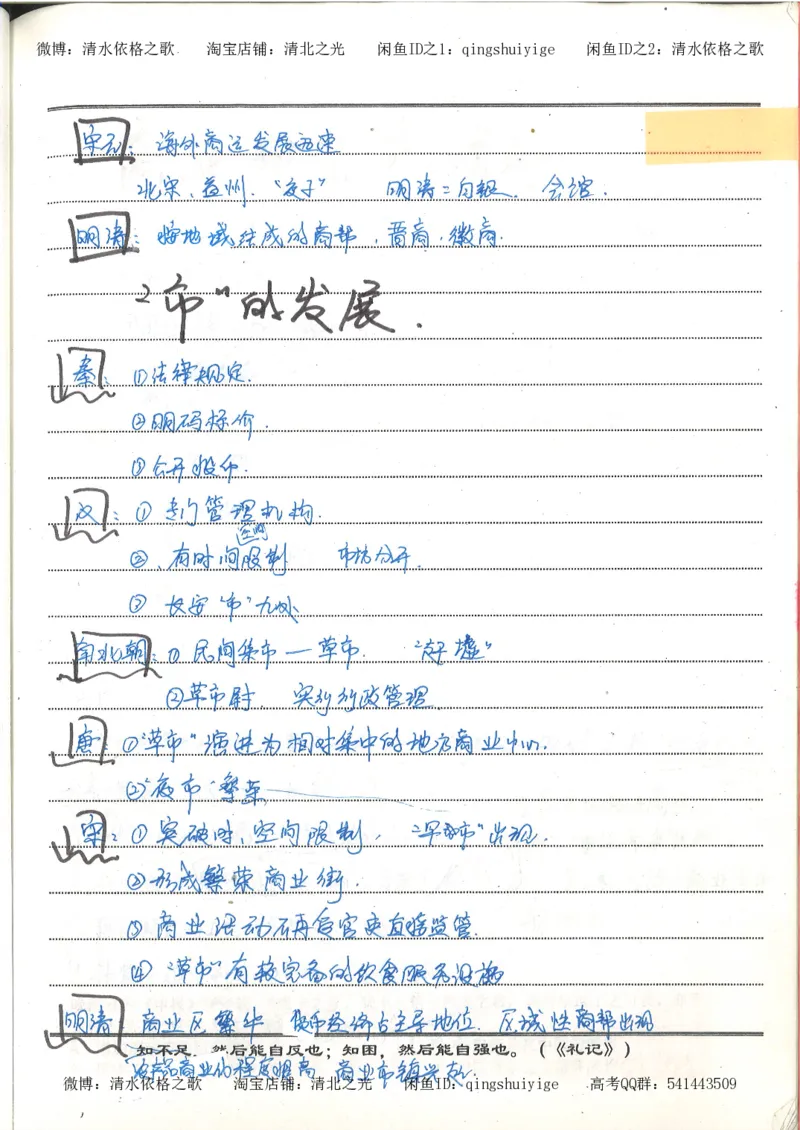 微博：清水依格之歌 淘宝店铺：清北之光 闲鱼ID之1：qingshuiyige 闲鱼ID之2：清水依格之歌
宋元：海外商运发展迅速
北宋、益州．“交子” 明清：白银．会馆．
明清：按地域结成的商帮，晋商，徽商．
“市”的发展．
秦：①法律规定．
②明码标价．
③公开投币．
汉：①专门管理机构．
空间
②有时间限制 市坊分开．
③长安“市”九处
南北朝：①民间集市—草市．“好墟”
②草市尉．实行行政管理．
唐：①“草市”演进为相对集中的地方商业中心．
②“夜市”繁荣
宋：①突破时、空间限制，“早市”出现．
②形成繁荣商业街．
③商业活动不再受官吏直接监管．
④“草市”有较完备的饮食服务设施
明清：商业区繁华 货币经济占主导地位．区域性商帮出现
知不足，然后能自反也；知困，然后能自强也。（《礼记》）
农产品商业化程度提高 商业市镇兴起．
微博：清水依格之歌 淘宝店铺：清北之光 闲鱼ID：qingshuiyige 高考QQ群：541443509